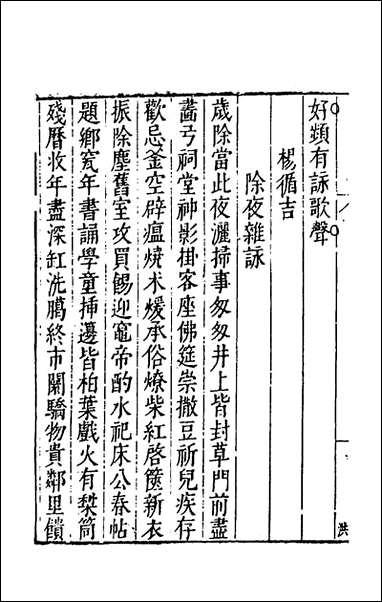 好類有詠歌聲
楊循吉
除夜雜詠
歲除當此夜灑掃事匆匆井上皆封草門前盡
畵弓祠堂神影掛客座佛筵崇撒豆祈兒疾存
歡忌釜空辟瘟燒朮煖承俗燎柴紅啓篋新衣
振除塵舊室攻買餳迎竈帝酌水祀床公春帖
題鄉䆒年書誦學童揷邊皆柏葉戲火有梨筒
殘曆收年盡深缸洗臈終市闤驕物貴鄰里饋
洪